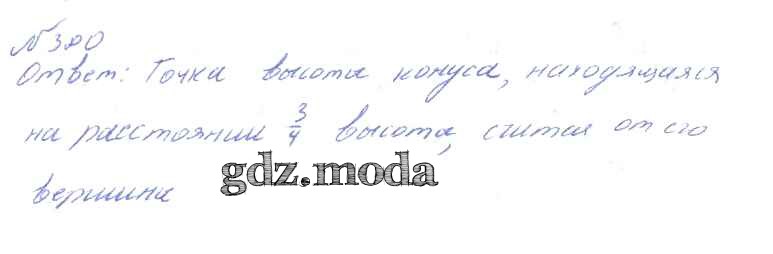 № 300
Ответ: Точка высоты конуса, находящаяся
на расстоянии 3/4 высоты, считая от его
вершины
gdz.moda